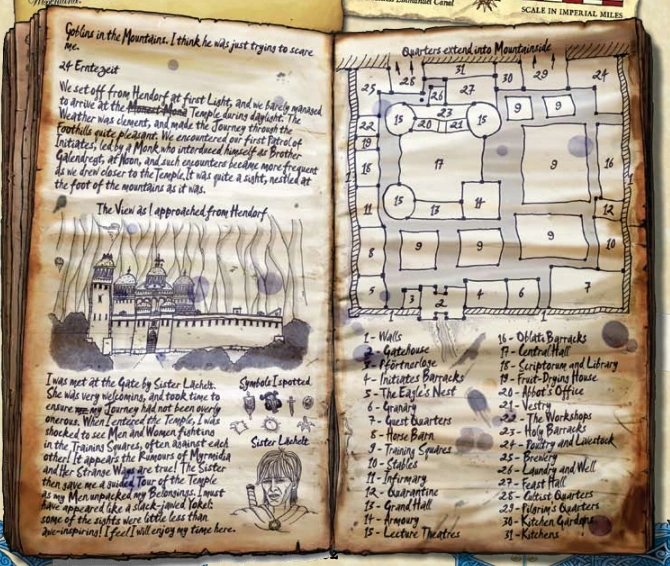 SCALE IN IMPERIAL MILES
Goblins in the Mountains. I think he was just trying to scare
me.
24 Erntezeit
We set off from Hendorf at first Light, and we barely managed
to arrive at the Temple during daylight. The
Weather was clement, and made the Journey through the
foothills quite pleasant. We encountered our first Patrol of
Initiates, led by a Monk who introduced himself as Brother
Galendregt, at Noon, and such encounters became more frequent
as we drew closer to the Temple. It was quite a sight, nestled at
the foot of the mountains as it was.
The View as I approached from Hendorf
I was met at the Gate by Sister Lächelt.
She was very welcoming, and took time to
ensure my Journey had not been overly
onerous. When I entered the Temple, I was
shocked to see Men and Women fighting
in the Training Squares, often against each
other! It appears the Rumours of Myrmidia
and Her Strange Ways are true! The Sister
then gave me a guided Tour of the Temple
as my Men unpacked my Belongings. I must
have appeared like a slack-jawed Yokel:
some of the sights were little less than
awe-inspiring! I feel I will enjoy my time here.
Symbols I spotted
Sister Lächelt
Quarters extend into Mountainside
25 28 31 30 29 24
26 27
9 9
22 15 23 15
20 21
19
18 17 9 16
11 15 13 14 12
8 9 9 9 10
5 3 2 4 6 7
1 1 1 1
1 - Walls
2 - Gatehouse
3 - Pförtnerloge
4 - Initiates Barracks
5 - The Eagle's Nest
6 - Granary
7 - Guest Quarters
8 - Horse Barn
9 - Training Squares
10 - Stables
11 - Infirmary
12 - Quarantine
13 - Grand Hall
14 - Armoury
15 - Lecture Theatres
16 - Oblate Barracks
17 - Central Hall
18 - Scriptorum and Library
19 - Fruit-Drying House
20 - Abbot's Office
21 - Vestry
22 - The Workshops
23 - Holy Barracks
24 - Poultry and Livestock
25 - Brewery
26 - Laundry and Well
27 - Feast Hall
28 - Cultist Quarters
29 - Kitchen Gardens
30 - Kitchen Gardens
31 - Kitchens